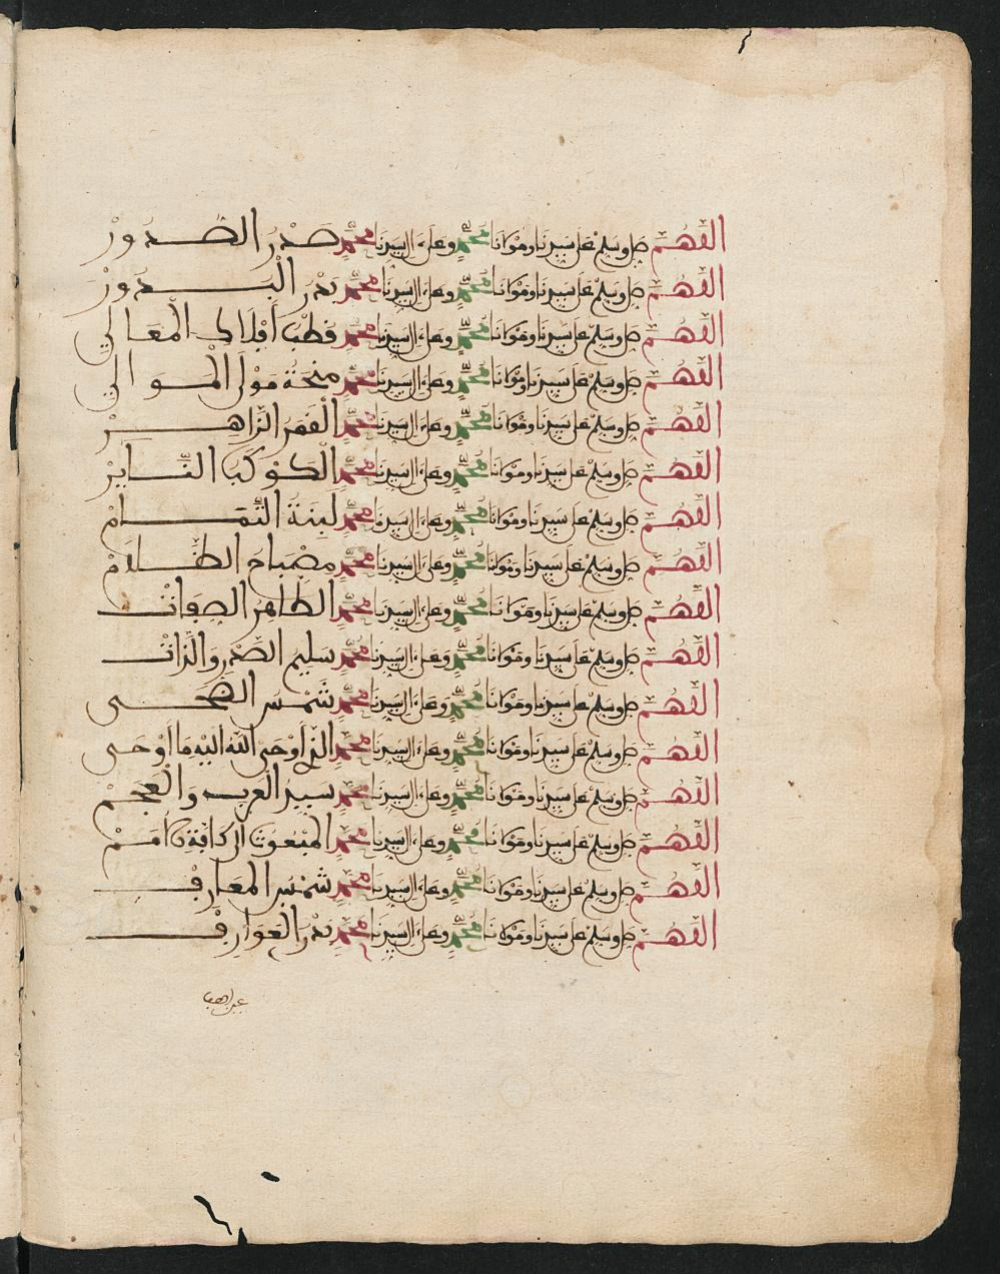 اللهم صل وسلم على سيدنا ومولانا محمد وعلى ءال سيدنا محمد صدر الصدور
اللهم صل وسلم على سيدنا ومولانا محمد وعلى ءال سيدنا محمد بدر البدور
اللهم صل وسلم على سيدنا ومولانا محمد وعلى ءال سيدنا محمد قطب أفلاك المعالي
اللهم صل وسلم على سيدنا ومولانا محمد وعلى ءال سيدنا محمد منحة مولى الموالي
اللهم صل وسلم على سيدنا ومولانا محمد وعلى ءال سيدنا محمد القمر الزاهر
اللهم صل وسلم على سيدنا ومولانا محمد وعلى ءال سيدنا محمد الكوكب الناير
اللهم صل وسلم على سيدنا ومولانا محمد وعلى ءال سيدنا محمد لبنة التمام
اللهم صل وسلم على سيدنا ومولانا محمد وعلى ءال سيدنا محمد مصباح الظلام
اللهم صل وسلم على سيدنا ومولانا محمد وعلى ءال سيدنا محمد الطاهر الصفات
اللهم صل وسلم على سيدنا ومولانا محمد وعلى ءال سيدنا محمد سليم الصدر والذات
اللهم صل وسلم على سيدنا ومولانا محمد وعلى ءال سيدنا محمد شمس الضحى
اللهم صل وسلم على سيدنا ومولانا محمد وعلى ءال سيدنا محمد الذي أوحى الله إليه ما أوحى
اللهم صل وسلم على سيدنا ومولانا محمد وعلى ءال سيدنا محمد سيد العرب والعجم
اللهم صل وسلم على سيدنا ومولانا محمد وعلى ءال سيدنا محمد المبعوث إلى كافة الأمم
اللهم صل وسلم على سيدنا ومولانا محمد وعلى ءال سيدنا محمد شمس المعارف
اللهم صل وسلم على سيدنا ومولانا محمد وعلى ءال سيدنا محمد بدر العوارف